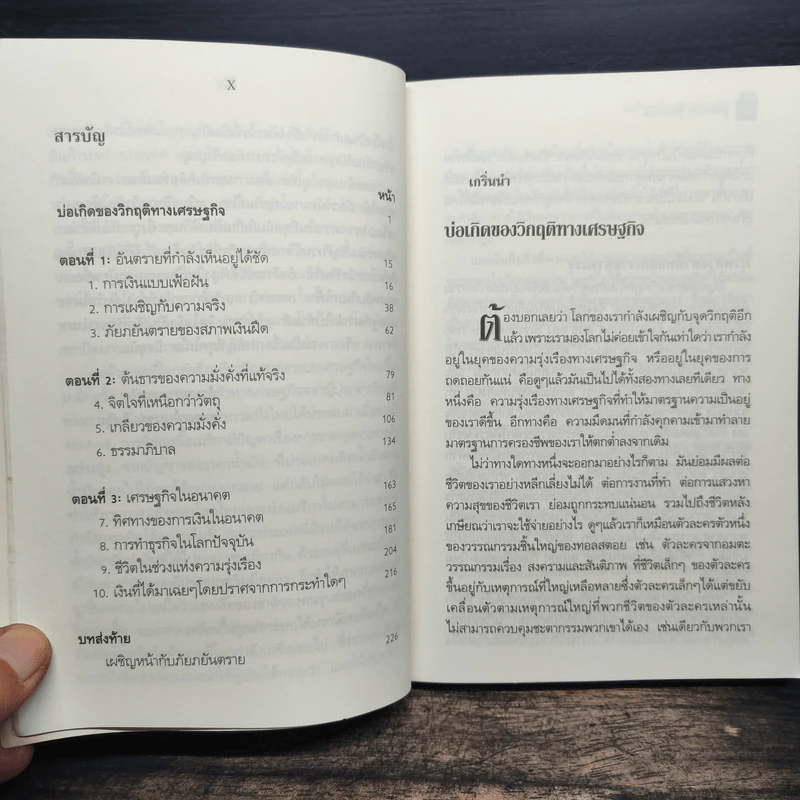 X
สารบัญ
หน้า
บ่อเกิดของวิกฤติทางเศรษฐกิจ 1
ตอนที่ 1: อันตรายที่กำลังเห็นอยู่ได้ชัด 15
1. การเงินแบบเฟ้อฝัน 16
2. การเผชิญกับความจริง 38
3. ภัยภยันตรายของสภาพเงินฝืด 62
ตอนที่ 2: ต้นธารของความมั่งคั่งที่แท้จริง 79
4. จิตใจที่เหนือกว่าวัตถุ 81
5. เกลียวของความมั่งคั่ง 106
6. ธรรมาภิบาล 134
ตอนที่ 3: เศรษฐกิจในอนาคต 163
7. ทิศทางของการเงินในอนาคต 165
8. การทำธุรกิจในโลกปัจจุบัน 181
9. ชีวิตในช่วงแห่งความรุ่งเรือง 204
10. เงินที่ได้มาเฉยๆโดยปราศจากการกระทำใดๆ 216
บทส่งท้าย 226
เผชิญหน้ากับภัยภยันตราย
เกริ่นนำ
บ่อเกิดของวิกฤติทางเศรษฐกิจ
ต้องบอกเลยว่า โลกของเรากำลังเผชิญกับจุดวิกฤติอีก
แล้ว เพราะเรามองโลกไม่ค่อยเข้าใจกันเท่าใดว่า เรากำลัง
อยู่ในยุคของความรุ่งเรืองทางเศรษฐกิจ หรืออยู่ในยุคของการ
ถดถอยกันแน่ คือดูๆแล้วมันเป็นไปได้ทั้งสองทางเลยทีเดียว ทาง
หนึ่งคือ ความรุ่งเรืองทางเศรษฐกิจที่ทำให้มาตรฐานความเป็นอยู่
ของเราดีขึ้น อีกทางคือ ความมืดมนที่กำลังคุกคามเข้ามาทำลาย
มาตรฐานการครองชีพของเราให้ตกต่ำลงจากเดิม
ไม่ว่าทางใดทางหนึ่งจะออกมาอย่างไรก็ตาม มันย่อมมีผลต่อ
ชีวิตของเราอย่างหลีกเลี่ยงไม่ได้ ต่อการงานที่ทำ ต่อการแสวงหา
ความสุขของชีวิตเรา ย่อมถูกกระทบแน่นอน รวมไปถึงชีวิตหลัง
เกษียณว่าเราจะใช้จ่ายอย่างไร ดูๆแล้วเราก็เหมือนตัวละครตัวหนึ่ง
ของวรรณกรรมชิ้นใหญ่ของทอลสตอย เช่น ตัวละครจากอมตะ
วรรณกรรมเรื่อง สงครามและสันติภาพ ที่ชีวิตเล็กๆ ของตัวละคร
ขึ้นอยู่กับเหตุการณ์ที่ใหญ่เหลือหลายซึ่งตัวละครเล็กๆได้แต่ขยับ
เคลื่อนตัวตามเหตุการณ์ใหญ่ที่พวกชีวิตของตัวละครเหล่านั้น
ไม่สามารถควบคุมชะตากรรมพวกเขาได้เอง เช่นเดียวกับพวกเรา